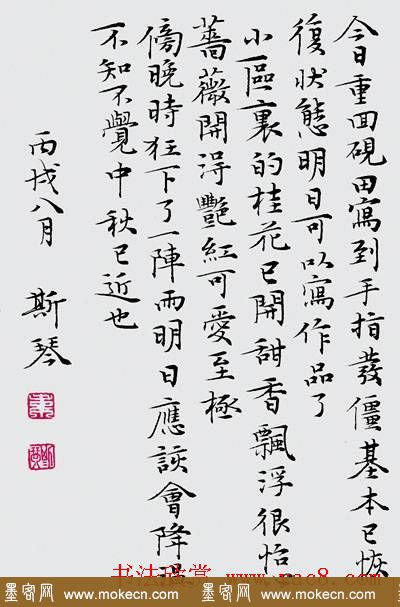 今日重面硯田寫到手指發僵基本已恢
復狀態明日可以寫作品了
小區裏的桂花已開甜香飄浮很怡
薔薇開得艷紅可愛至極
傍晚時狂下了一陣雨明日應該會降
不知不覺中秋已近也
丙戌八月
斯琴
墨客网 www.mokecn.com 墨客网 www.mokecn.com